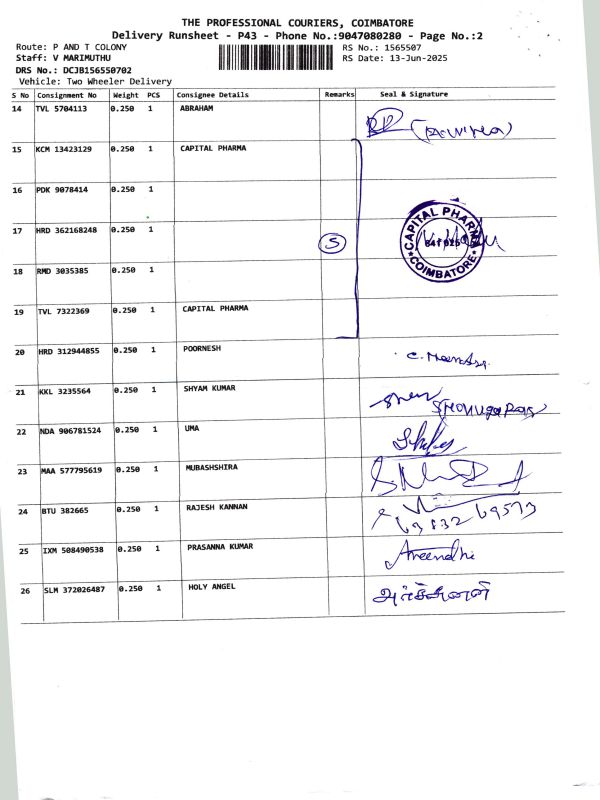 THE PROFESSIONAL COURIERS, COIMBATORE
Delivery Runsheet - P43 - Phone No.:9047080280 - Page No.:2
Route: P AND T COLONY
Staff: V MARIMUTHU
DRS No.: DCJB156550702
Vehicle: Two Wheeler Delivery
RS No.: 1565507
RS Date: 13-Jun-2025
S No Consignment No Weight PCS Consignee Details Remarks Seal & Signature
14 TVL 5704113 0.250 1 ABRAHAM
15 KCM 13423129 0.250 1 CAPITAL PHARMA
16 PDK 9078414 0.250 1
17 HRD 362168248 0.250 1 5
CAPITAL PHARMA
COIMBATORE
18 RMD 3035385 0.250 1
19 TVL 7322369 0.250 1 CAPITAL PHARMA
20 HRD 312944855 0.250 1 POORNESH
21 KKL 3235564 0.250 1 SHYAM KUMAR
22 NDA 906781524 0.250 1 UMA
23 MAA 577795619 0.250 1 MUBASHSHIRA
24 BTU 382665 0.250 1 RAJESH KANNAN
25 IXM 508490538 0.250 1 PRASANNA KUMAR
26 SLM 372026487 0.250 1 HOLY ANGEL